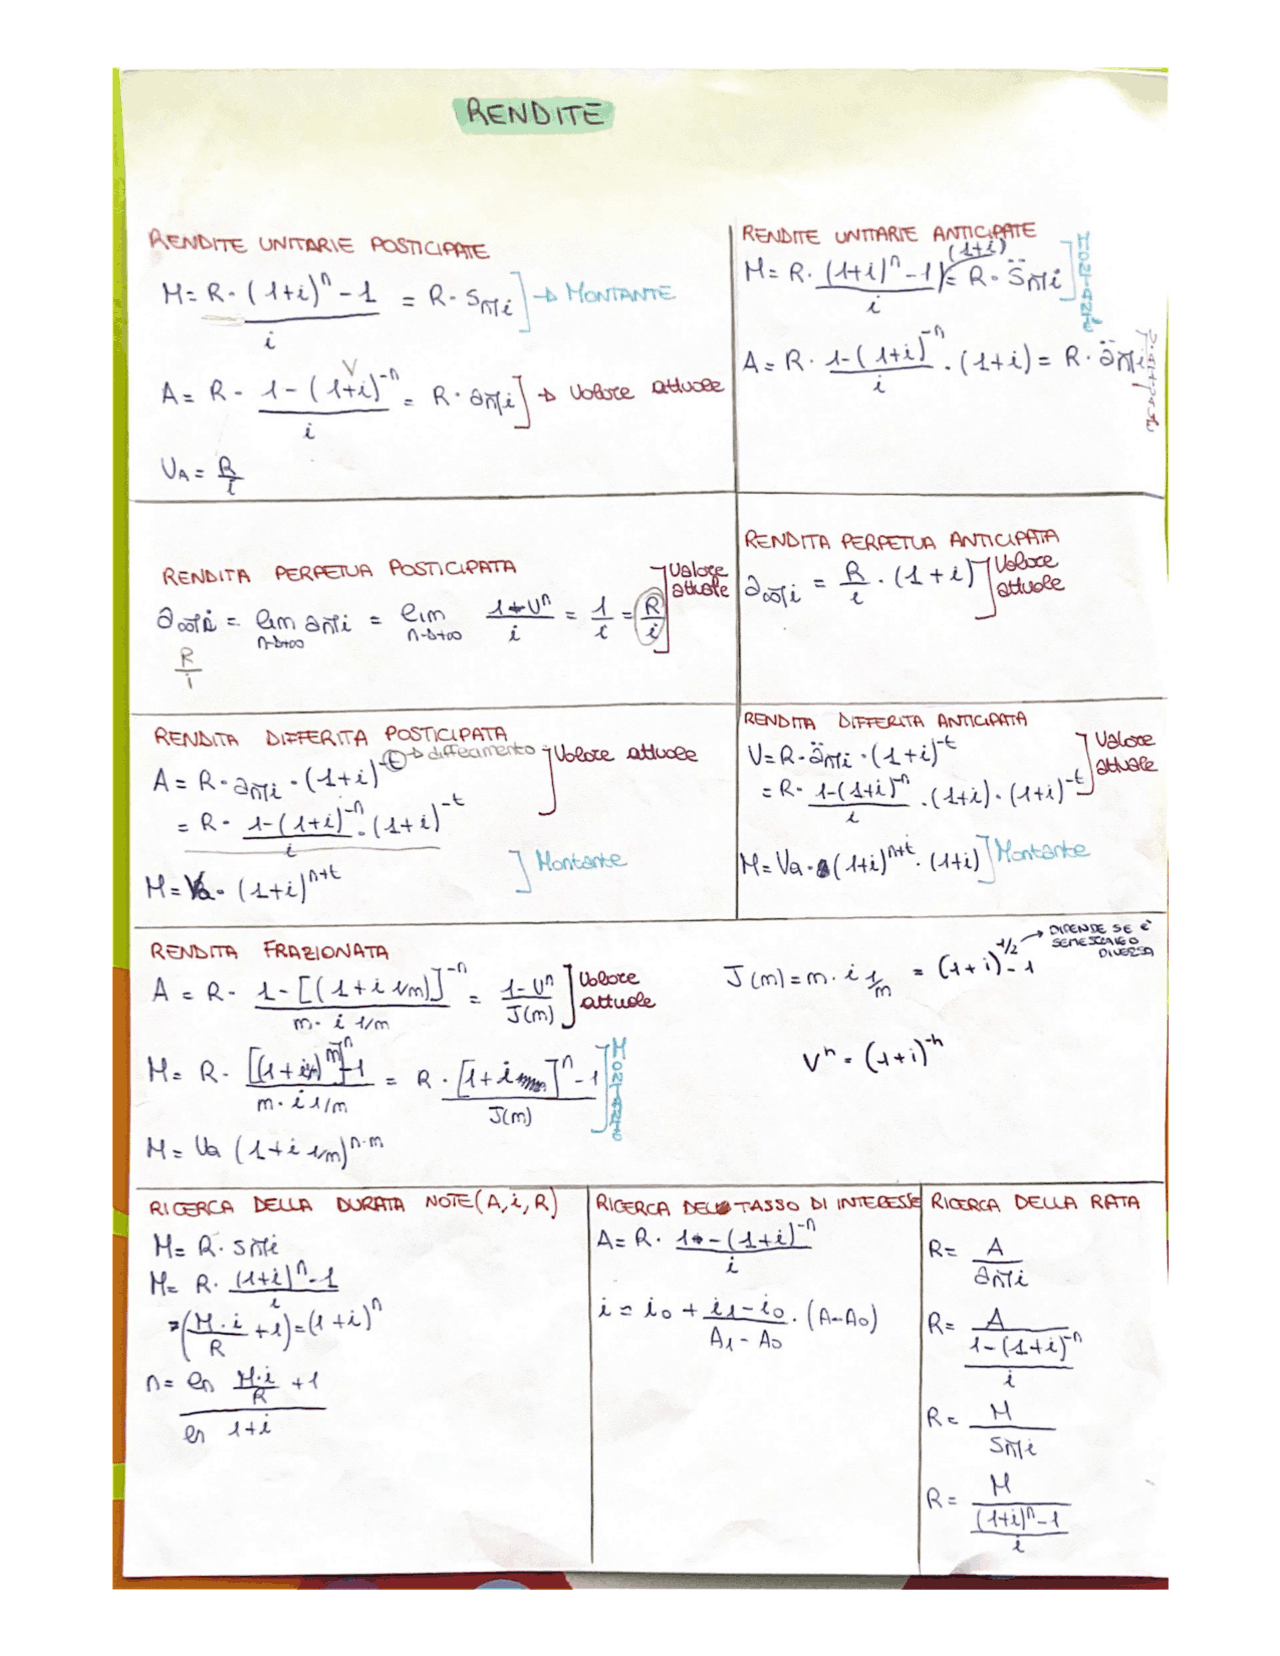 RENDITE
RENDITE UNITARIE POSTICIPATE
M = R · (1+i)^n - 1 / i = R · s n̅|i → MONTANTE
V
A = R · 1 - (1+i)^-n / i = R · a n̅|i → Valore attuale
VA = R/i
RENDITE UNITARIE ANTICIPATE
M = R · (1+i)^n - 1 / i (1+i) = R · s̈ n̅|i MONTANTE
A = R · 1 - (1+i)^-n / i · (1+i) = R · ä n̅|i
RENDITA PERPETUA POSTICIPATA
a ∞̅|i = lim n→+∞ a n̅|i = lim n→+∞ 1 - v^n / i = 1/i = R/i Valore attuale
R/i
RENDITA PERPETUA ANTICIPATA
a ∞̅|i = R/i · (1+i) Valore attuale
RENDITA DIFFERITA POSTICIPATA
A = R · a n̅|i · (1+i)^-t → differimento Valore attuale
= R · 1 - (1+i)^-n / i · (1+i)^-t
M = Va · (1+i)^n+t Montante
RENDITA DIFFERITA ANTICIPATA
V = R · ä n̅|i · (1+i)^-t Valore attuale
= R · 1 - (1+i)^-n / i · (1+i) · (1+i)^-t
M = Va · (1+i)^n+t · (1+i) Montante
RENDITA FRAZIONATA
A = R · 1 - [(1+i 1/m)]^-n / m · i 1/m = 1 - v^n / J(m) Valore attuale
M = R · [(1+i 1/m)^m]^n - 1 / m · i 1/m = R · [1+i]^n - 1 / J(m) MONTANTE
M = Va (1+i 1/m)^n·m
J(m) = m · i 1/m = (1+i)^1/2 - 1 → DIPENDE SE È SEMESTRALE O DIVERSA
v^n = (1+i)^-n
RICERCA DELLA DURATA NOTE (A, i, R)
M = R · s n̅|i
M = R · (1+i)^n - 1 / i
= (M · i / R + 1) = (1+i)^n
n = ln M·i / R + 1 / ln 1+i
RICERCA DEL TASSO DI INTERESSE
A = R · 1 - (1+i)^-n / i
i = i0 + i1 - i0 / A1 - A0 · (A - A0)
RICERCA DELLA RATA
R = A / a n̅|i
R = A / 1 - (1+i)^-n / i
R = M / s n̅|i
R = M / (1+i)^n - 1 / i